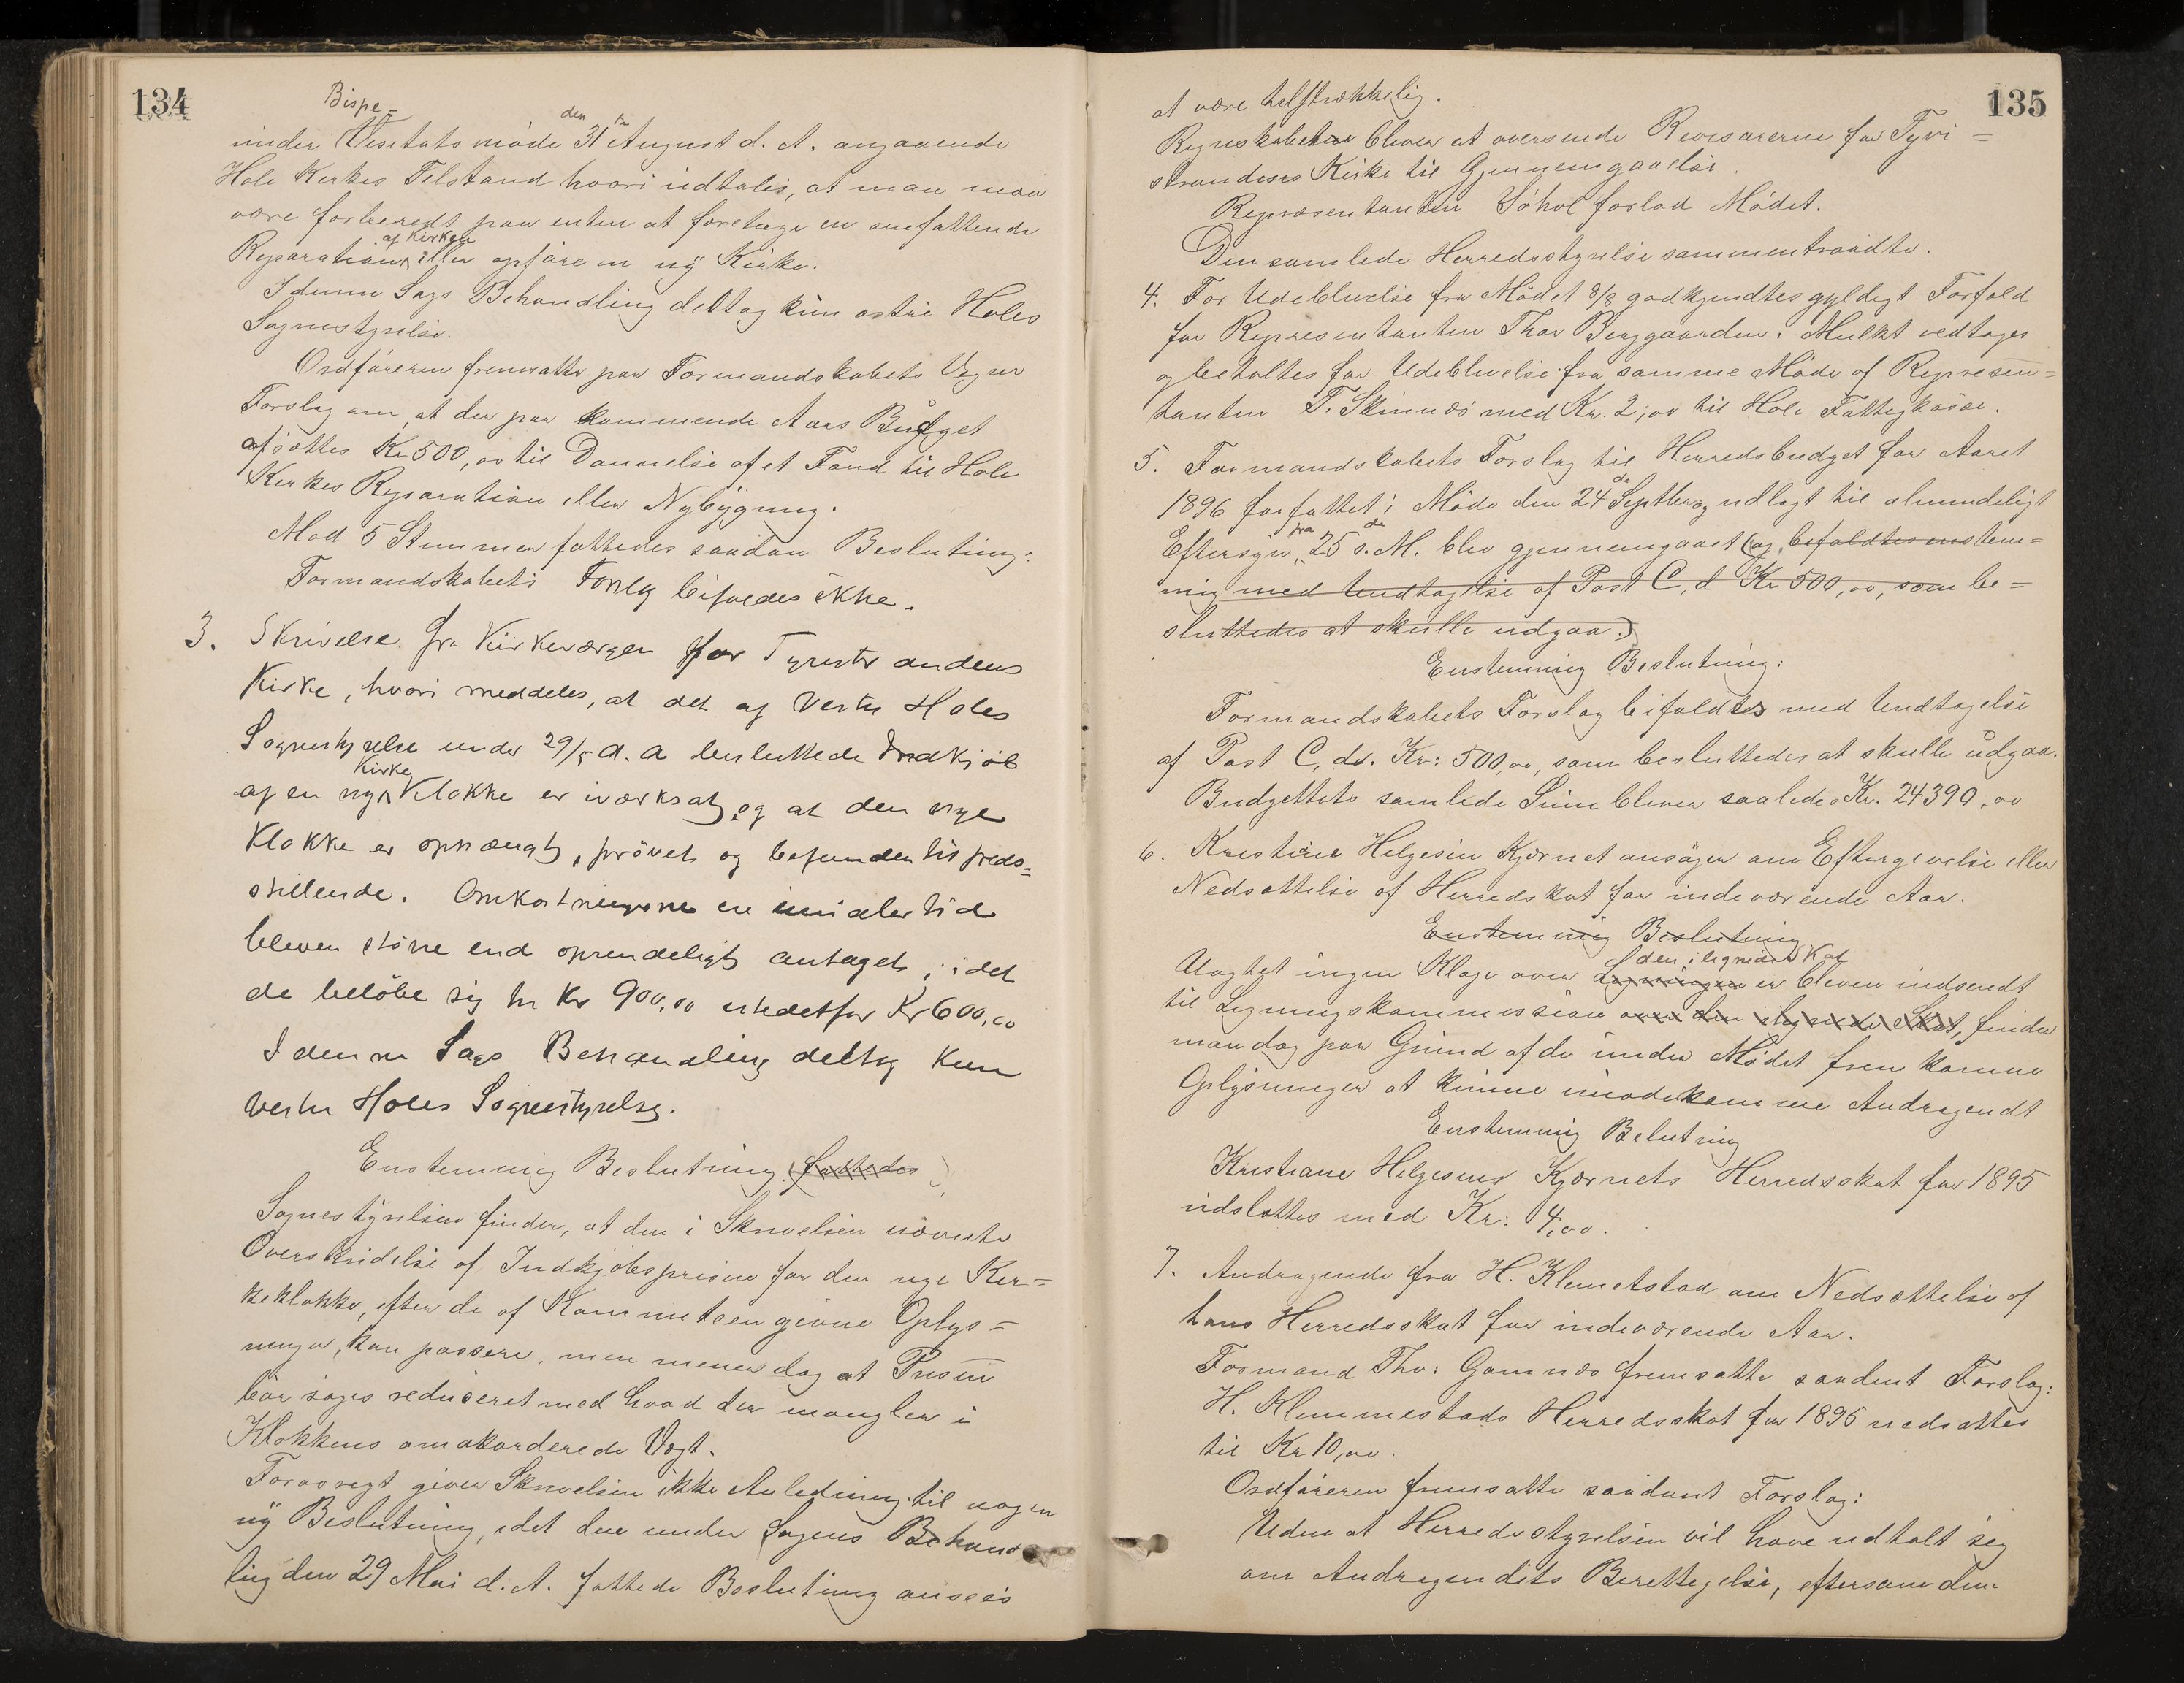 134
Bispe-
under Visitatsmöde den 31te August d. A. angaaende
Hole Kirkes Tilstand hvori udtales, at man maa
være forberedt paa enten at foretage en omfattende
Reparation af Kirken eller opføre en ny Kirke.
I denne Sags Behandling deltog kun østre Holes
Sognestyrelse.
Ordføreren fremsatte paa Formandskabets Vegne
Forslag om, at der paa kommende Aars Budget
afsættes Kr 500,00 til Dannelse af et Fond til Hole
Kirkes Reparation eller Nybygning.
Mod 5 Stemmer fattedes saadan Beslutning:
Formandskabets Forslag bifaldes ikke.
3. Skrivelse fra Kirkeværgen for Tyristrandens
Kirke, hvori meddeles, at det af Vestre Holes
Sognestyrelse under 29/5 d. A besluttede Indkjøb
af en ny Kirke Klokke er iværksat, og at den nye
Klokke er ophængt, prøvet og befunden tilfreds-
stillende. Omkostningerne er imidlertid
bleven større end oprindeligt antaget, idet
de beløbe sig til Kr 900,00 istedetfor Kr 600,00
I denne Sags Behandling deltog kun
Vestre Holes Sognestyrelse.
Enstemmig Beslutning (fattedes)
Sognestyrelsen finder, at den i Skrivelsen nævnte
Overskridelse af Indkjøbsprisen for den nye Kir-
keklokke, efter de af Kommiteen givne Oplys-
ninger, kan passere, men mener dog at Prisen
bør søges reduceret med hvad der mangler i
Klokkens omakorderede Vægt.
Forøvrigt giver Skrivelsen ikke Anledning til nogen
ny Beslutning, idet den under Sagens Behand
ling den 29 Mai d. A. fattede Beslutning ansees
135
at være tilstrækkelig.
Regnskaberne bliver at oversende Revisorerne for Tyri-
strandens Kirke til Gjennemgaaelse.
Repræsentanten Søhol forlod Mødet.
Den samlede Herredsstyrelse sammentraadte.
4. For Udeblivelse fra Mødet 8/8 godkjendtes gyldigt Forfald
for Repræsentanten Thor Berggaarden. Mulkt vedtages
og betaltes for Udeblivelse fra samme Møde af Repræsen-
tanten T. Skinnæs med Kr. 2,00 til Hole Fattigkasse.
5. Formandskabets Forslag til Herredsbudget for Aaret
1896 forfattet i Møde den 24de Septbr og udlagt til almindeligt
Eftersyn fra 25de s. M. blev gjennemgaaet (og bifaldtes enstem-
mig med Undtagelse af Post C, d Kr 500,00, som be-
sluttedes at skulle udgaa.)
Enstemmig Beslutning:
Formandskabets Forslag bifaldtes med Undtagelse
af Post C, d. Kr: 500,00, som besluttedes at skulle udgaa.
Budgettets samlede Sum bliver saaledes Kr. 24390,00
6. Kristiane Helgesen Kjærnet ansøger om Eftergivelse eller
Nedsættelse af Herredskat for indeværende Aar.
Enstemmig Beslutning
Uagtet ingen Klage over Ligningen den ilignede Skat er bleven indsendt
til Ligningskommissionen over den ilignede Skat, finder
man dog paa Grund af de under Mødet fremkomne
Oplysninger at kunne imødekomme Andragendet
Enstemmig Belutning
Kristiane Helgesens Kjærnets Herredsskat for 1895
udslettes med Kr: 4,00.
7. Andragende fra H. Klemetstad om Nedsættelse af
hans Herredsskat for indeværende Aar.
Formand Thv: Gomnæs fremsatte saadant Forslag:
H. Klemmestads Herredsskat for 1895 nedsættes
til Kr 10,00.
Ordføreren fremsatte saadant Forslag:
Uden at Herredsstyrelsen vil have udtalt sig
om Andragendets Berettigelse, eftersom den